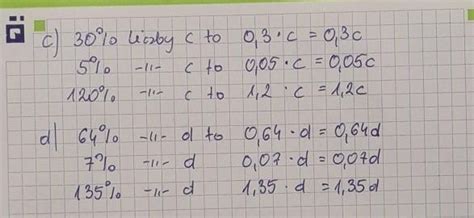 c) 30% liczby c to 0,3 · c = 0,3c
5% -||- c to 0,05 · c = 0,05c
120% -||- c to 1,2 · c = 1,2c
d) 64% -||- d to 0,64 · d = 0,64d
7% -||- d 0,07 · d = 0,07d
135% -||- d 1,35 · d = 1,35d